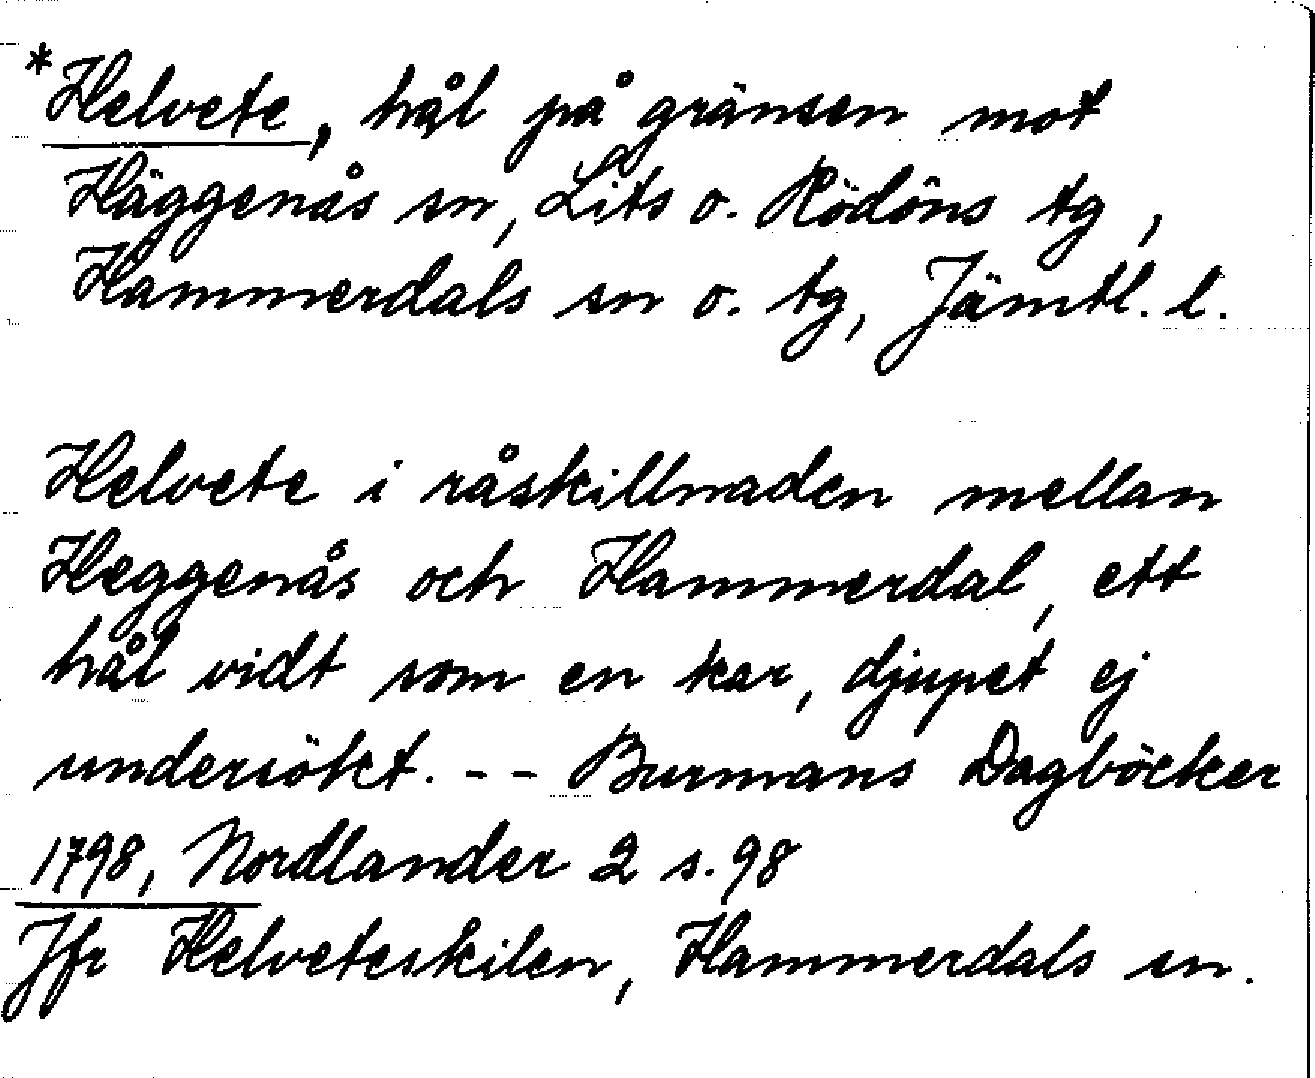 *Helvete, hål på gränsen mot
Häggenås sn, Lits o. Rödöns tg,
Hammerdals sn o. tg, Jämtl. l.
Helvete i råskillnaden mellan
Heggenås och Hammerdal, ett
hål vidt som en kar, djupet ej
undersökt. - - Burmans Dagböcker
1798, Nordlander 2 s. 98
Jfr Helveteskilen, Hammerdals sn.